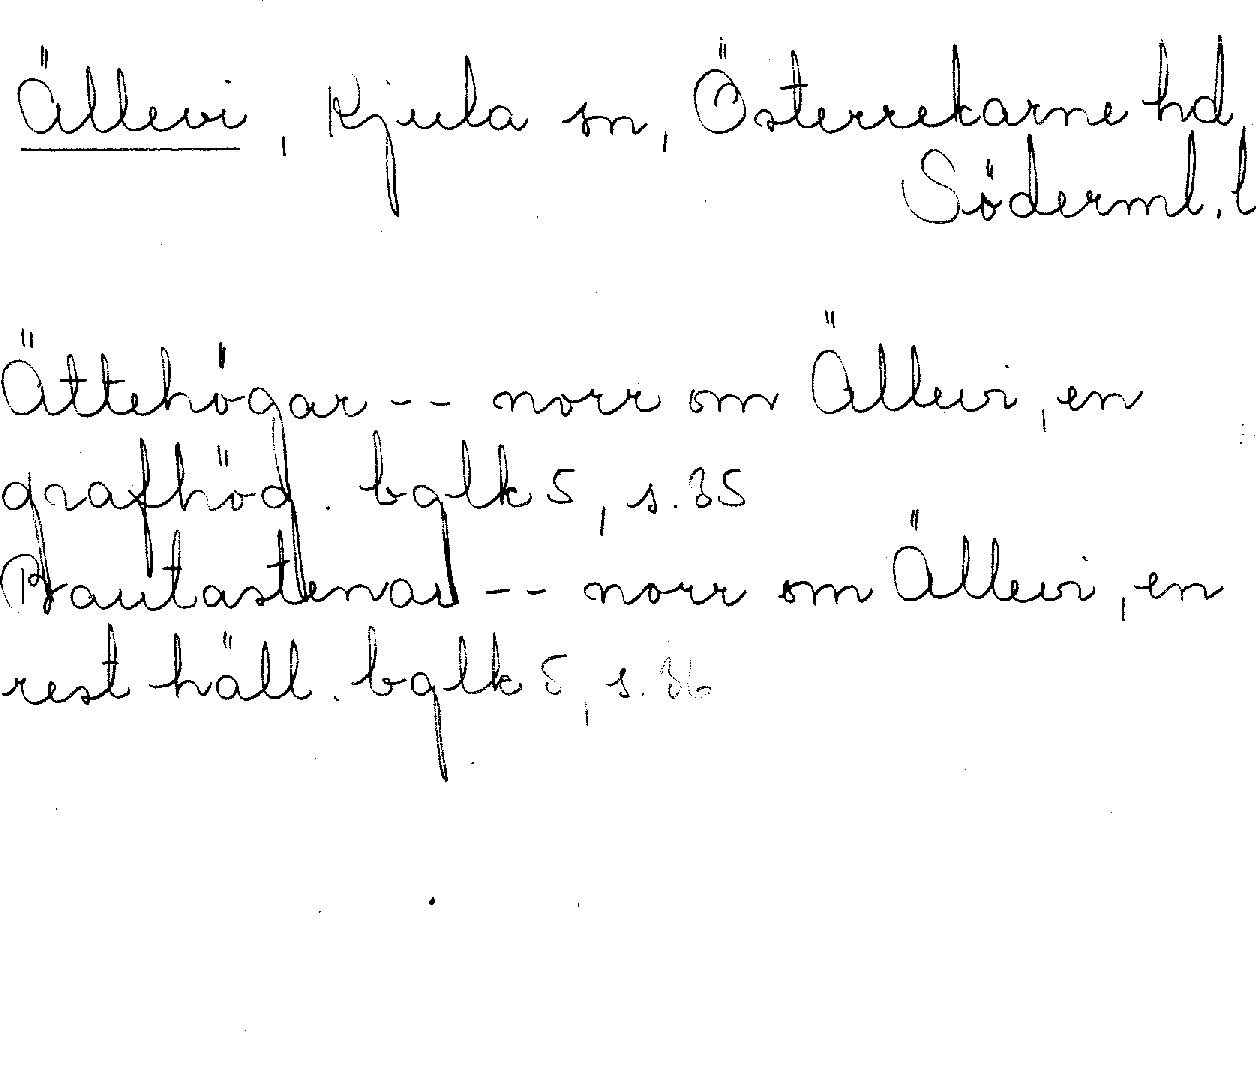 Ällevi, Kjula sn, Österrekarne hd,
Söderml. l
Ättehögar -- norr om Ällevi, en
grafhög. bglk 5, s. 35
Bautastenar -- norr om Ällevi, en
rest häll. bglk 5, s. 36